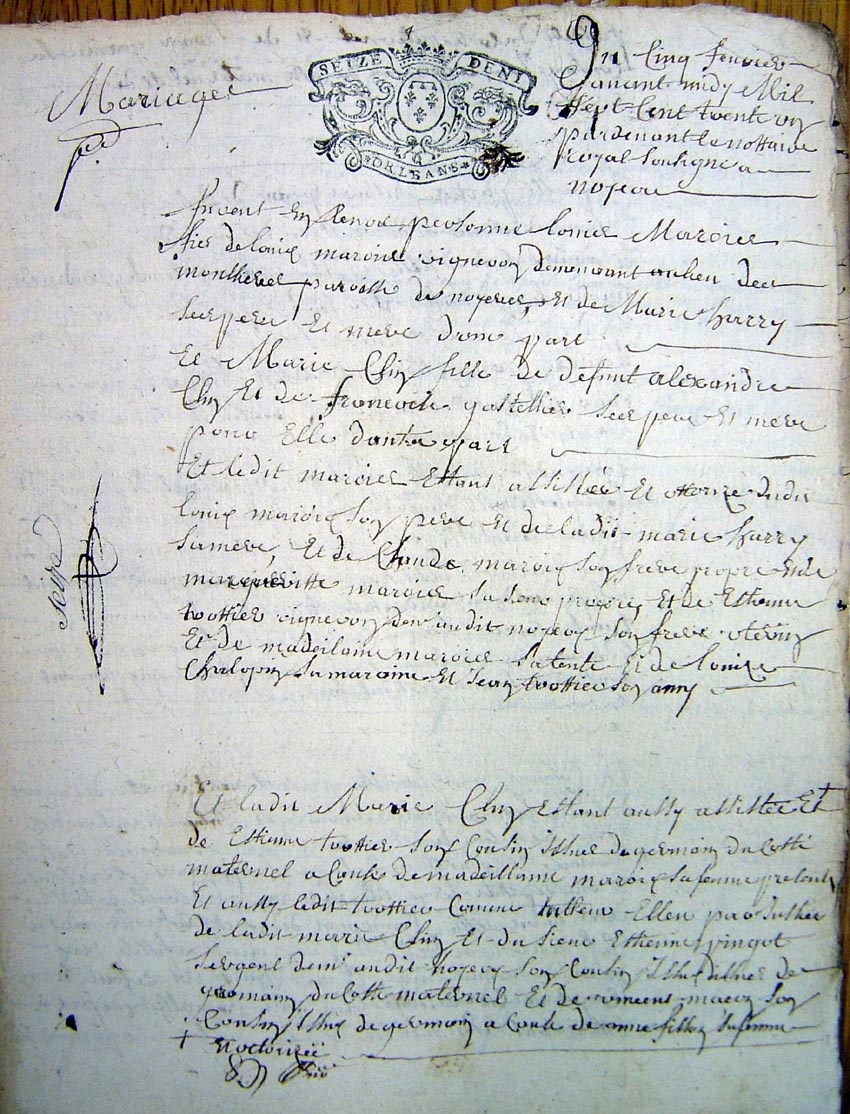 Mariage
SEIZE DENI
ORLEANS
Du Cinq fevrier
avant midy Mil
Sept Cent trente
pardevant le nottaire
royal soubsigne a
noyers
furent en leurs personne louis Marois
fils de louis marois vigneron demeurant au lieu des
paroisse de noyers, Et de Marie harry
ses pere Et mere d'une part
Et Marie Clin fille de defunt alexandre
Clin Et de francoise gastellier ses pere Et mere
pour Elle dautre part
Et ledit marois Estant assisté Et ottorizé dudit
louis marois son pere Et de ladit marie harry
sa mere, Et de Claude marois son frere propre Et de
margueritte marois sa seur propre, Et de Estienne
trottier vigneron dem.t audit noyers son frere uterin
Et de madeilaine marois sa tente Et de louise
Charlopin sa maraine Et Jean trottier son amy
Et ladit Marie Clin Estant aussy assistée Et
de Estienne trottier son Cousin issus de germain du Cotté
maternel a Cause de madeillaine marois sa femme
Et aussy ledit trottier Comme tutteur
de ladit marie Clin Et du sieur Estienne pingot
sergent dem.t audit noyers son Cousin issus de
germain du Cotté maternel Et de son
Cousin issus de germain a Cause de anne sa femme
Et octorizée